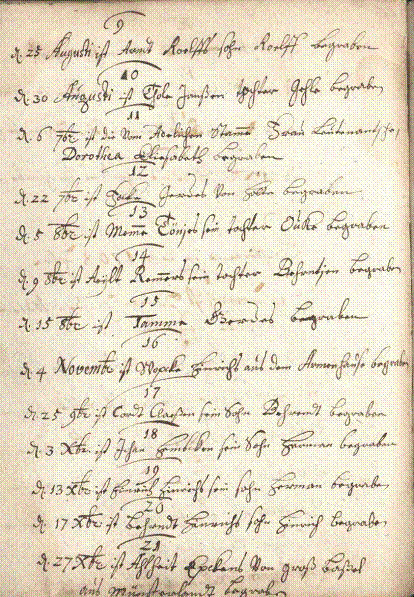 9
d. 25 Augusti ist Arndt Roelffs sohn Roelff begraben
10
d. 30 Augusti ist Janßen tochter begraben
11
d. 6 7br ist die Vom Adelichen Stamme Frau
Dorothea Eliesabeth begraben
12
d. 22 7br ist Gerdes Von begraben
13
d. 5 8br ist Meme Tonjes sein tochter begraben
14
d. 9 8br ist Remmers sein tochter begraben
15
d. 15 8br ist Tamme Gerdes begraben
16
d. 4 Novembr ist Wopke Hinrichs aus dem Armenhause begraben
17
d. 25 9br ist Cordt Claeßen sein Sohn Behrendt begraben
18
d. 3 Xbr ist Johan sein Sohn Herman begraben
19
d. 13 Xbr ist Hinrichs sein sohn Herman begraben
20
d. 17 Xbr ist Behrendt Hinrichs sohn Hinrich begraben
21
d. 27 Xbr ist Ahlheit Epckens Von groß
aus Münsterlandt begraben